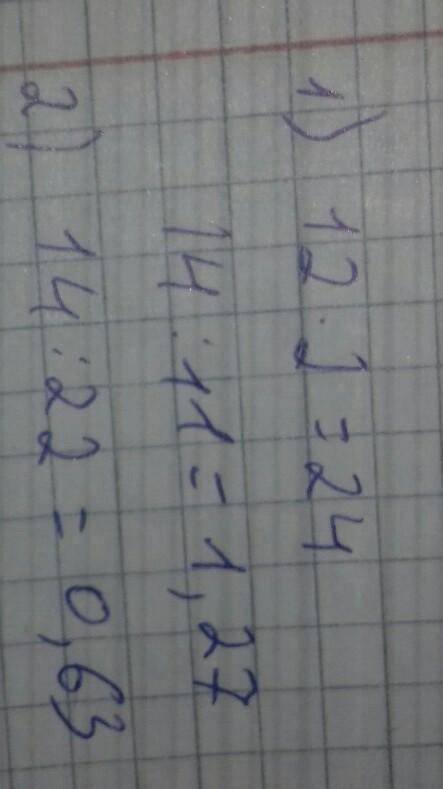 1) 12 · 2 = 24
14 : 11 = 1,27
2) 14 : 22 = 0,63